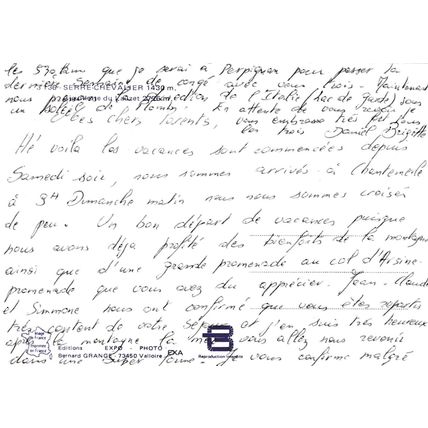 les             que je serai à Perpignan pour passer la
dernière semaine de congé avec vous trois. Maintenant
05138 - SERRE-CHEVALIER 1430 m.
nous prenons la direction de l'Italie (lac de garde) sous
un soleil de plomb. En attente de vous revoir je
vous embrasse très fort tous
les trois Daniel Brigitte
Mes chers parents,
Hé voilà les vacances sont commencées depuis
Samedi soir, nous sommes arrivés à chantemerle
à 3H Dimanche matin nous nous sommes croisés
de peu. Un bon départ de vacances puisque
nous avons déjà profité des bienfaits de la montagne
ainsi que d'une grande promenade au col d'Arsine.
promenade que vous avez du apprécier. Jean-Claude
et Simmone nous ont confirmé que vous êtes repartis
très content de votre séjour et j'en suis très heureux
après la montagne la mer vous allez nous revenir
Editions EXPO - PHOTO EXA
Bernard GRANGE - 73450 Valloire
Reproduction interdite
dans une super forme. Je vous confirme malgré